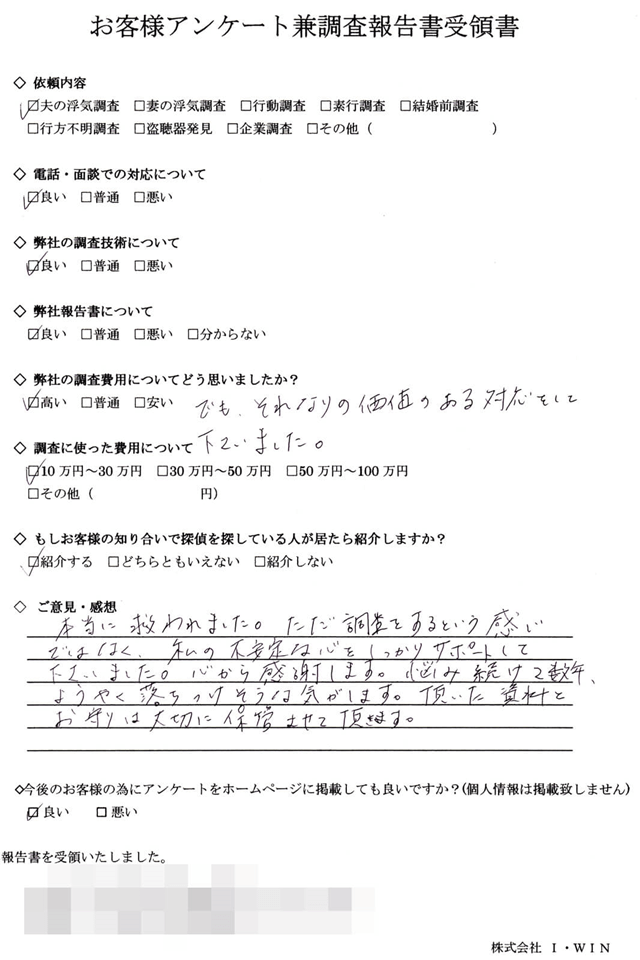 お客様アンケート兼調査報告書受領書
◇ 依頼内容
☑夫の浮気調査 □妻の浮気調査 □行動調査 □素行調査 □結婚前調査
□行方不明調査 □盗聴器発見 □企業調査 □その他（ ）
◇ 電話・面談での対応について
☑良い □普通 □悪い
◇ 弊社の調査技術について
☑良い □普通 □悪い
◇ 弊社報告書について
☑良い □普通 □悪い □分からない
◇ 弊社の調査費用についてどう思いましたか？
☑高い □普通 □安い でも、それなりの価値のある対応をして
下さいました。
◇ 調査に使った費用について
☑10万円〜30万円 □30万円〜50万円 □50万円〜100万円
□その他（ 円）
◇ もしお客様の知り合いで探偵を探している人が居たら紹介しますか？
☑紹介する □どちらともいえない □紹介しない
◇ ご意見・感想
本当に救われました。ただ調査をするという感じ
ではなく、私の不安定な心をしっかりサポートして
下さいました。心から感謝します。悩み続けて数年、
ようやく落ちつけそうな気がします。頂いた資料と
お守りは大切に保管させて頂きます。
◇今後のお客様の為にアンケートをホームページに掲載しても良いですか？(個人情報は掲載致しません)
☑良い □悪い
報告書を受領いたしました。
株式会社 I・WIN